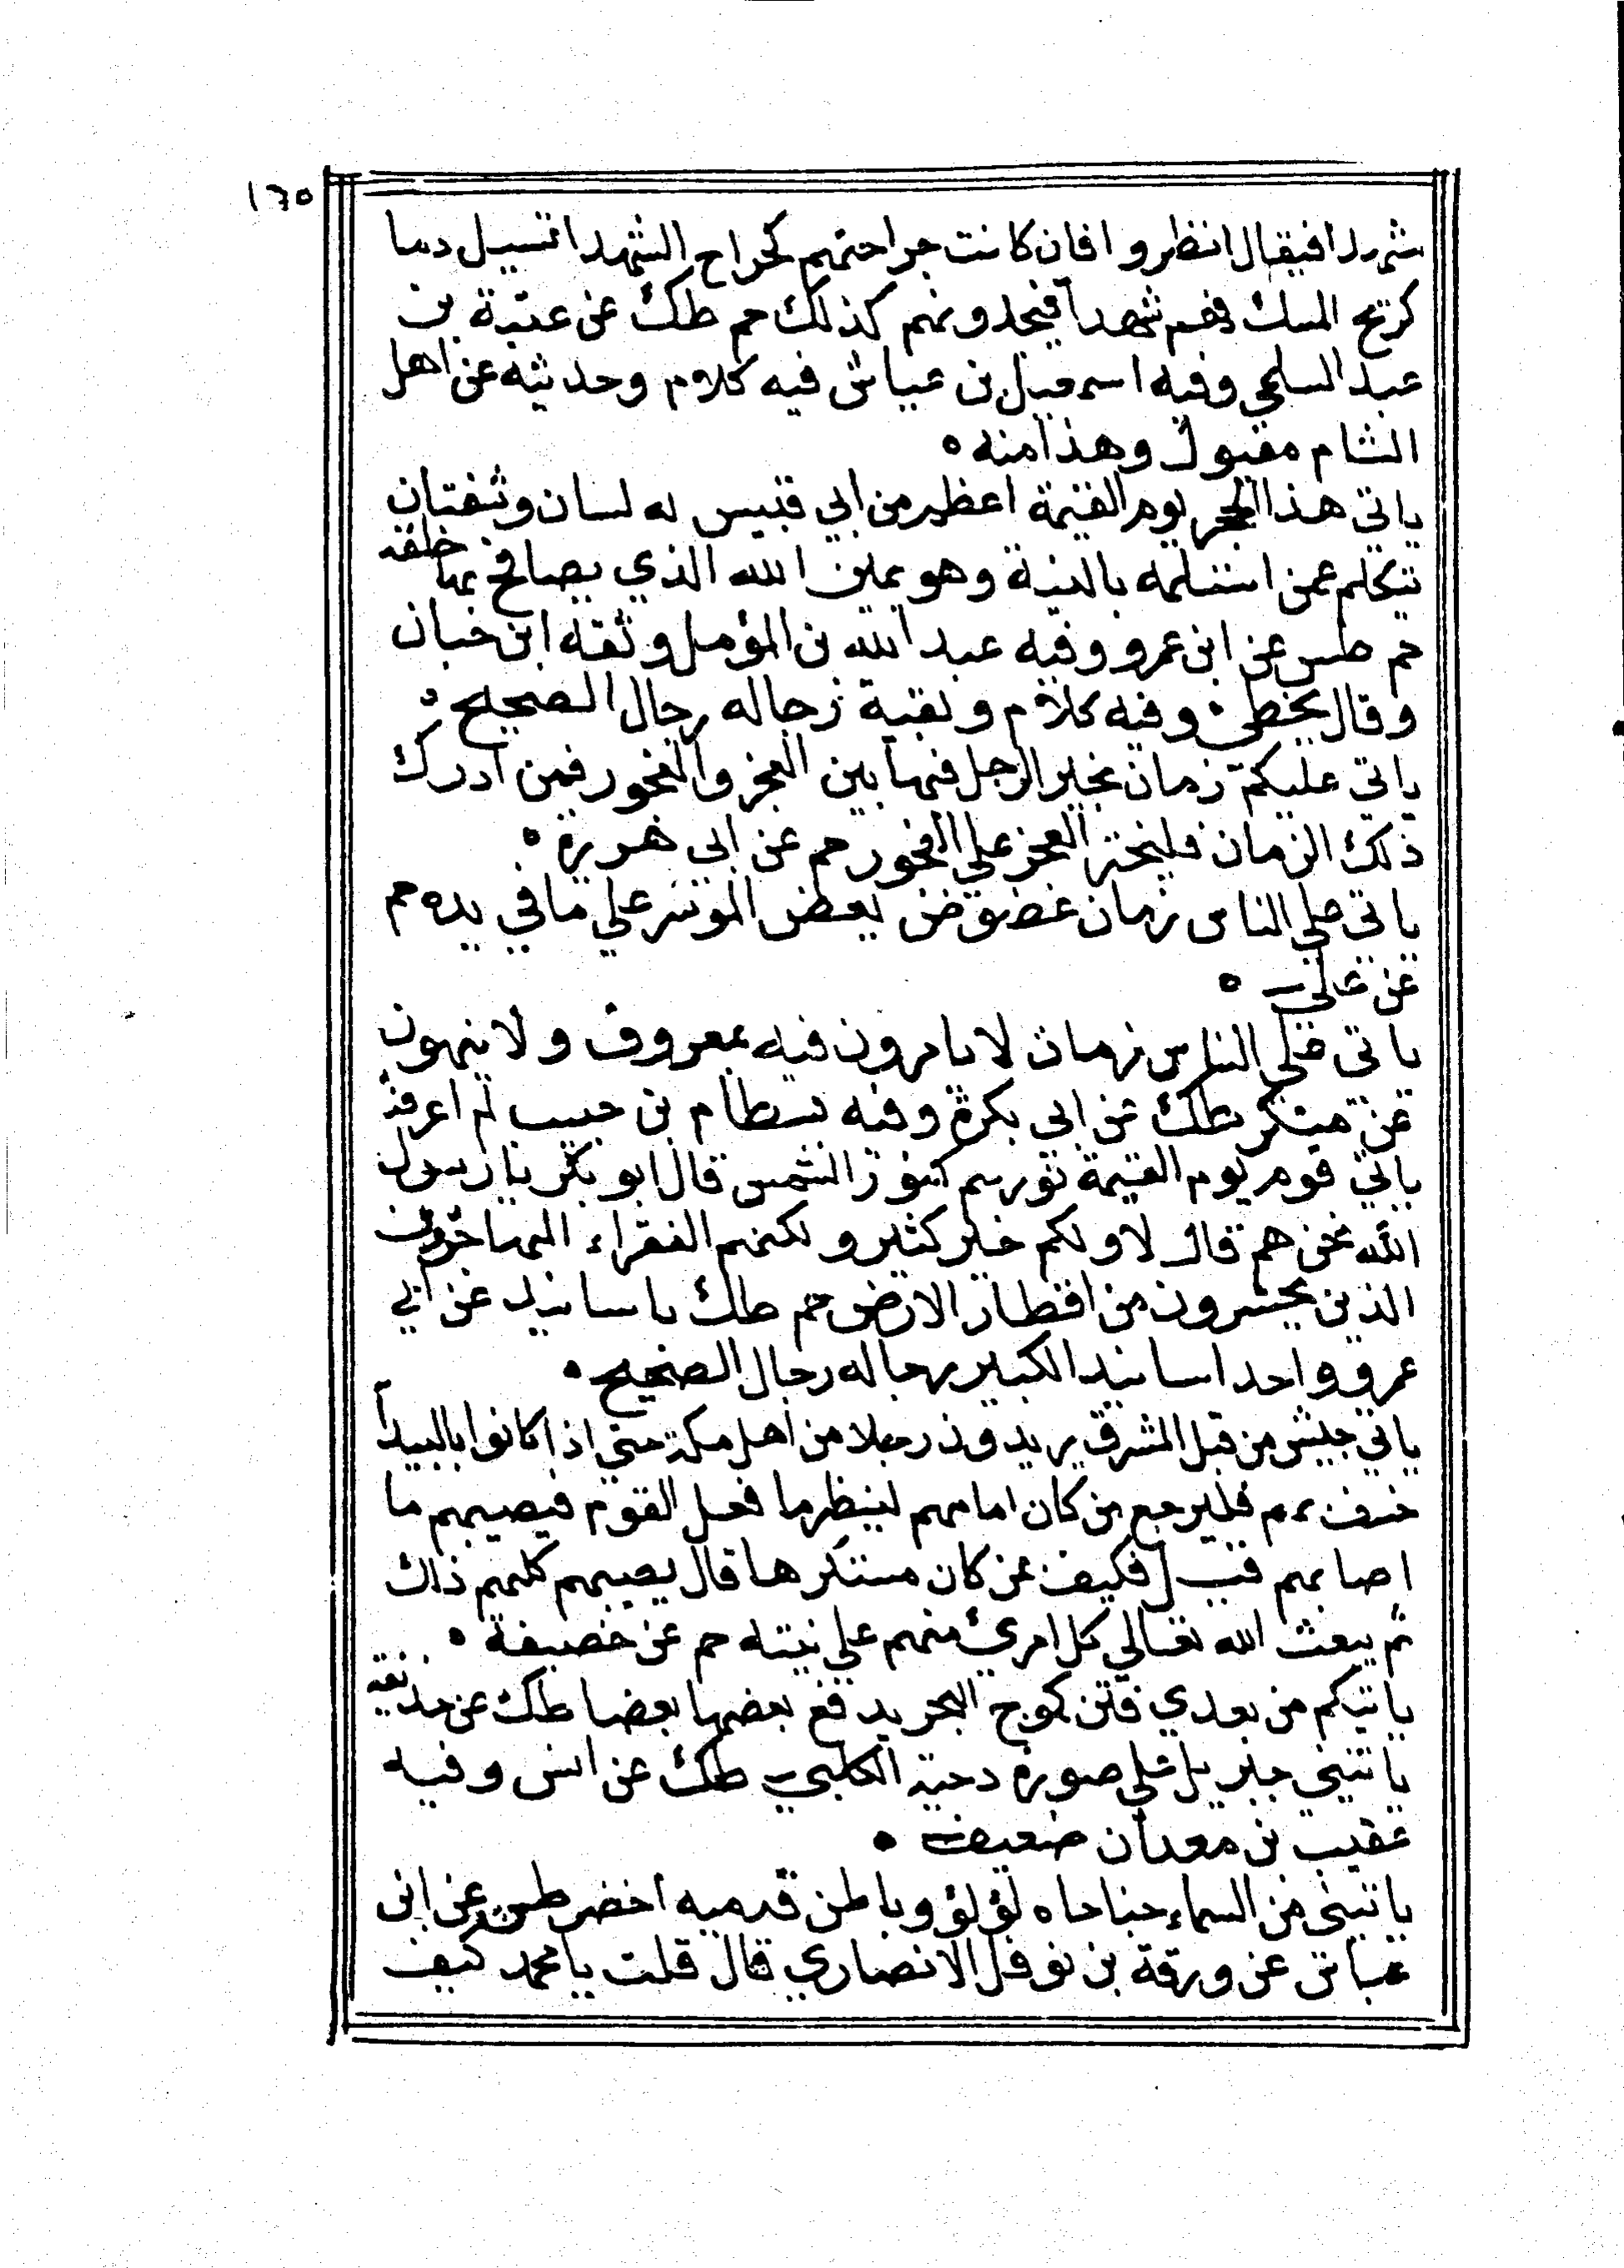 ١٦٥
شهدا فيقال انظروا فان كانت جراحتهم كجراح الشهدا تسيل دما
كريح المسك فهم شهدا فيجدونهم كذلك حم طك عن عتبة بن
عبد السلمي وفيه اسمعيل بن عياش فيه كلام وحديثه عن اهل
الشام مقبول وهذا منه ه
ياتي هذا الحجر يوم القيمة اعظم من ابي قبيس له لسان وشفتان
تتكلم عمن استلمه بالنية وهو يمين الله الذي يصافح بها خلقه
حم طس عن ابن عمرو وفيه عبد الله بن المؤمل وثقه ابن حبان
وقال يخطئ وفيه كلام وبقية رجاله رجال الصحيح ه
ياتي عليكم زمان يخير الرجل فيها بين العجز والفجور فمن ادرك
ذلك الزمان فليختر العجز علي الفجور حم عن ابي هريرة ه
ياتي علي الناس زمان عضوض يعض الموسر علي ما في يده حم
عن علي ه
ياتي علي الناس زمان لا يامرون فيه بمعروف ولا ينهون
عن منكر طك عن ابي بكرة وفيه بسطام بن حبيب لم اعرفه
ياتي قوم يوم القيمة نورهم كنور الشمس قال ابو بكر يا رسول
الله نحن هم قال لا ولكم خير كثير ولكنهم الفقراء المهاجرون
الذين يحشرون من اقطار الارض حم طك باسانيد عن ابن
عمرو واحد اسانيد الكبير رجاله رجال الصحيح ه
ياتي جيش من قبل المشرق يريدون رجلا من اهل مكة حتي اذا كانوا بالبيدآ
خسف بهم فليرجع من كان امامهم لينظر ما فعل القوم فيصيبهم ما
اصابهم قيل فكيف عن كان مستكرها قال يصيبهم كلهم ذاك
ثم يبعث الله تعالي كل امرئ منهم علي نيته حم عن حفصة ه
ياتيكم من بعدي فتن كموج البحر يدفع بعضها بعضا طك عن حذيفة
ياتيني جبريل علي صورة دحية الكلبي طك عن انس وفيه
عفير بن معدان ضعيف ه
ياتيني من السماء جناحاه لؤلؤ وباطن قدميه اخضر طس عن ابن
عباس عن ورقة بن نوفل الانصاري قال قلت يا محمد كيف